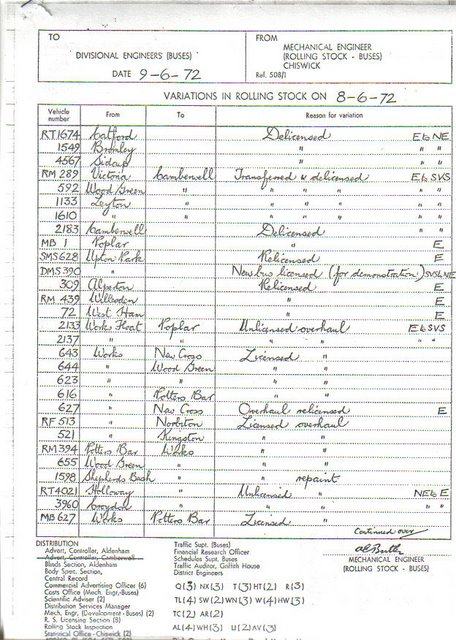 TO
DIVISIONAL ENGINEERS (BUSES)
DATE 9-6-72
FROM
MECHANICAL ENGINEER
(ROLLING STOCK - BUSES)
CHISWICK
Ref. 508/1
VARIATIONS IN ROLLING STOCK ON 8-6-72
Vehicle number From To Reason for variation
RT1674 Catford Delicensed E to NE
1549 Bromley " " "
4567 Sidcup " " "
RM 289 Victoria Camberwell Transferred & delicensed E to SVS
592 Wood Green " " " " " "
1133 Leyton " " " " " "
1610 " " " " " " "
2183 Camberwell Delicensed " "
MB 1 Poplar " E
SMS 628 Upton Park Relicensed E
DMS 390 " New bus licensed (for demonstration) SVS to NE
309 Alperton Relicensed E
RM 439 Willesden " E
72 West Ham " E
2133 Works Float Poplar Unlicensed overhaul E to SVS
2137 " " " " " "
643 Works New Cross Licensed "
644 " Wood Green " "
623 " " " "
616 " Potters Bar " "
627 " New Cross Overhaul relicensed E
RF 513 " Norbiton Licensed overhaul
521 " Kingston " "
RM 394 Potters Bar Works " "
655 Wood Green " " "
1598 Shepherds Bush " " repaint
RT4021 Holloway " Unlicensed " NE to E
3960 Croydon " " " "
MB 627 Works Potters Bar Licensed "
Continued over
DISTRIBUTION
Advert. Controller, Aldenham
Advert. Controller, Camberwell
Blinds Section, Aldenham
Body Spert. Section,
Central Record
Commercial Advertising Officer (6)
Costs Office (Mech. Engr.-Buses)
Scientific Adviser (2)
Distribution Services Manager
Mech. Engr. (Development - Buses) (2)
R. S. Licensing Section (8)
Rolling Stock Inspection
Statistical Office - Chiswick (2)
Traffic Supt. (Buses)
Financial Research Officer
Schedules Supt. Buses
Traffic Auditor, Griffith House
District Engineers
Q(3) NX(3) T(3) HT(2) R(3)
TL(4) SW(2) WN(3) W(4) HW(3)
TC(2) AR(2)
AL(4) WH(3) U(2) AV(3)
MECHANICAL ENGINEER
(ROLLING STOCK - BUSES)